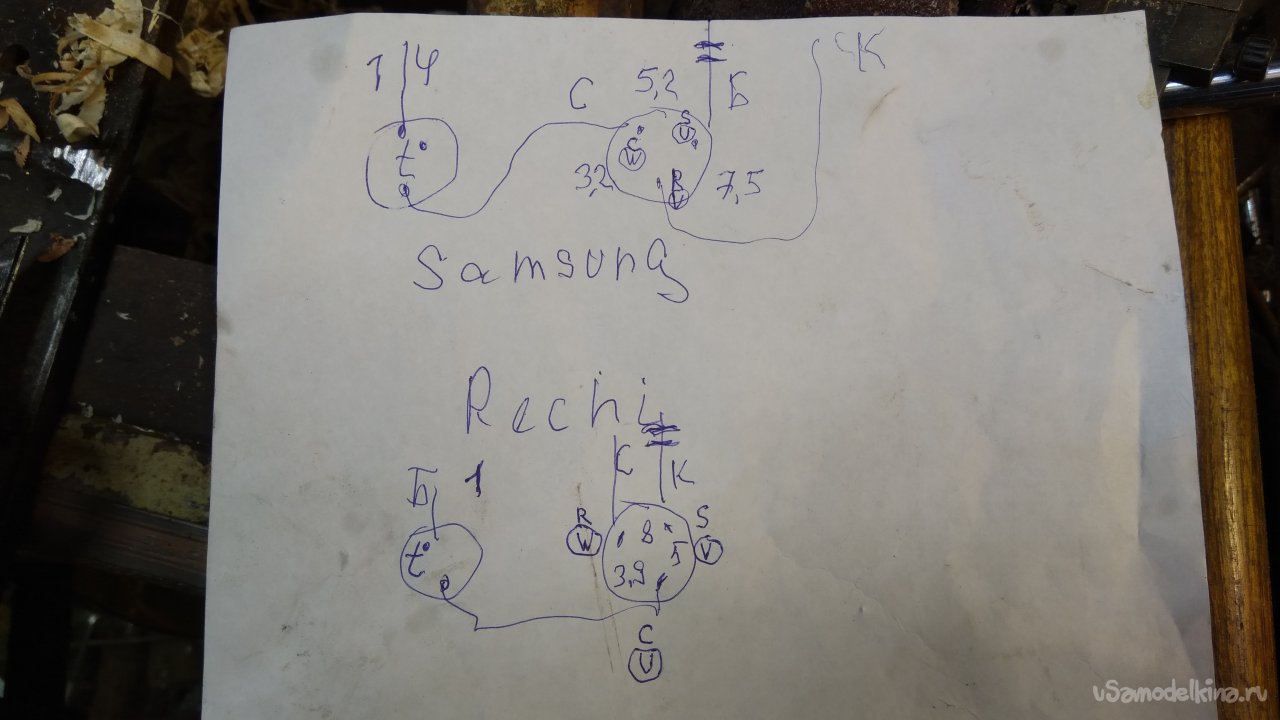 1 Ч
С
5,2
Б
ЧК
t
S
C
W
3,2
R
7,5
Samsung
Rechi
С
К
Б 1
R
W
8
S
V
t
3,9
5
C
V
uSamodelkina.ru